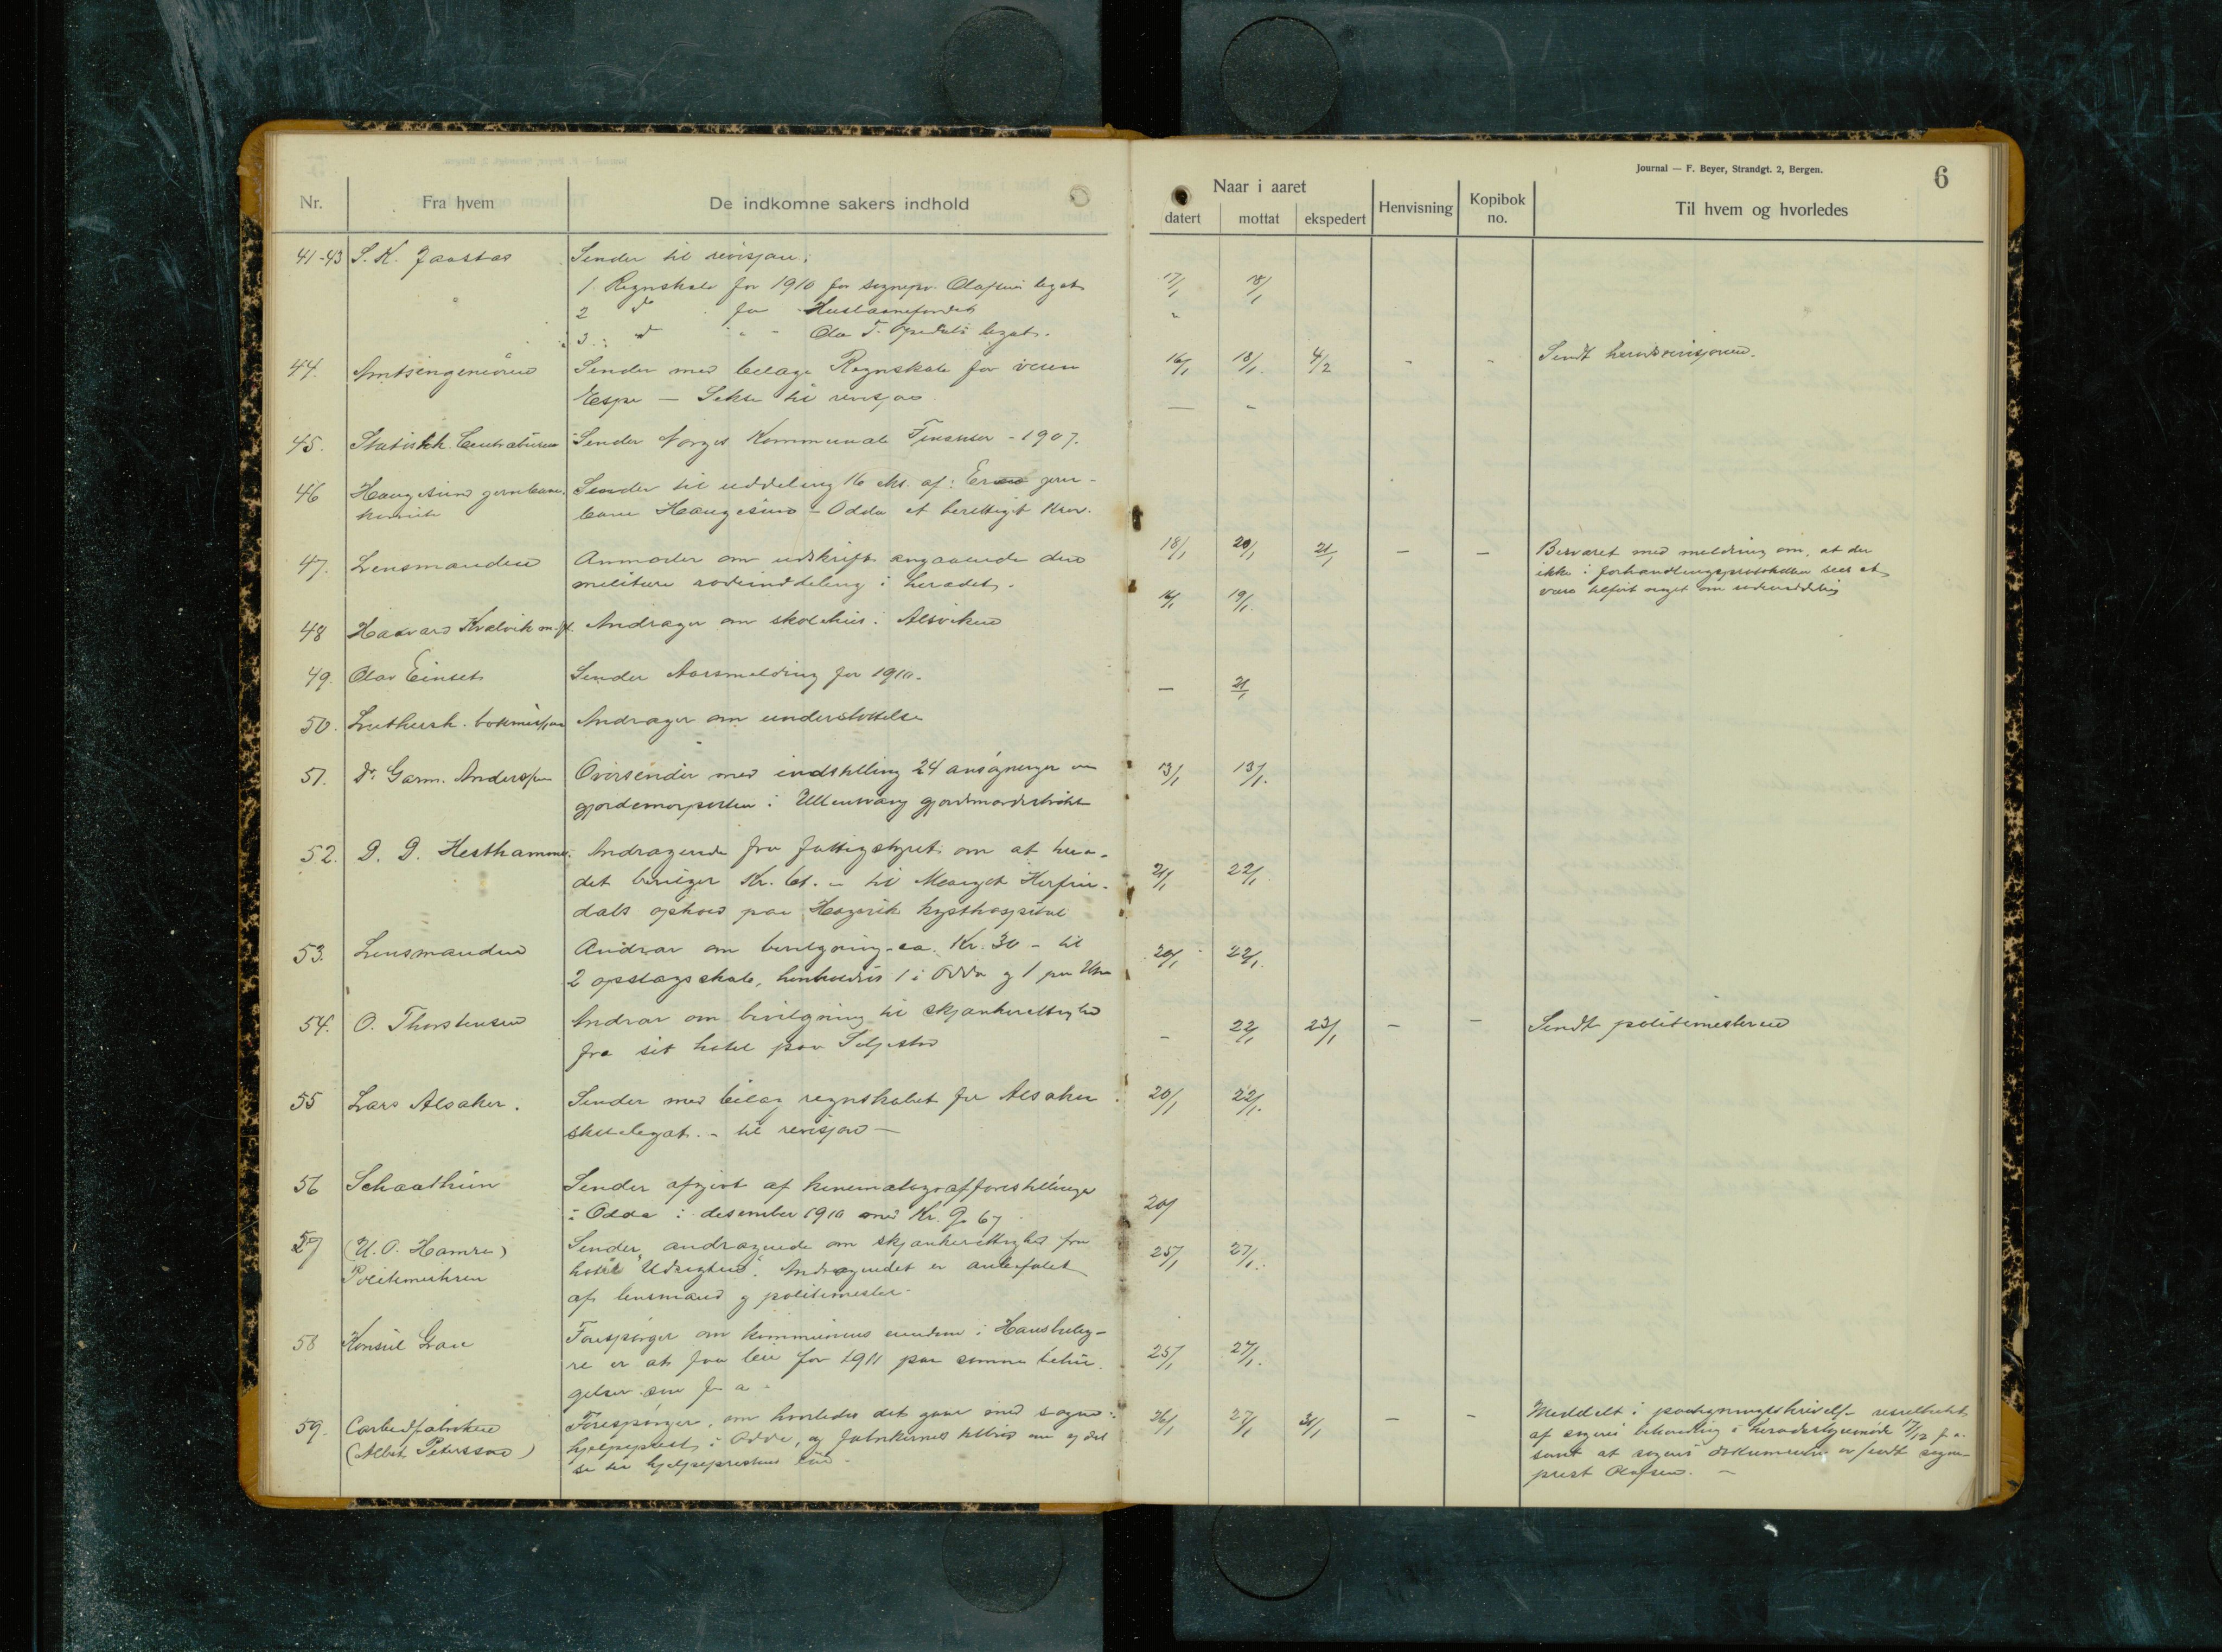 Journal — F. Beyer, Strandgt. 2, Bergen.
6
Nr.
Fra hvem
De indkomne sakers indhold
Naar i aaret
datert
mottat
ekspedert
Henvisning
Kopibok
no.
Til hvem og hvorledes
41-43 S. K. Jaastad Sender til revisjon:
1. Regnskab for 1910 for sognepr. Olafsens legat 17/1 18/1
2 do for Huslaanefondet "
3. do " - Ola T. legat.
44. Amtsingeniøren Sender med bilage Regnskab for veien 16/1 18/1. 4/2 - - Sendt herredsrevisjonen.
Espe — Sekse til revisjon — -
45. Statistisk Centralbureau Sender Norges Kommunale Finanser - 1907.
46 Haugesund jernbane- Sender til uddeling 16 eks. af: Er jern-
komite bane Haugesund - Odda et berettiget Krav.
47. Lensmanden Anmoder om udskrift angaaende den 18/1 20/1 21/1 — — Besvaret med melding om, at der
militære rodeinddeling i heradet. ikke i forhandlingsprotokollen sees at
være tilført noget om rodeinddeling
48 Haavard Kvalvik m.fl. Andrager om skolehus i Alsviken 16/1 19/1.
49. Olav Einset Sender Aarsmelding for 1910. — 21/1
50. Luthersk. Andrager om understøttelse
51. Dr. Garm. Andersen Oversender med indstilling 24 ansøgninger om 13/1 13/1.
gjordemorposten i Ullensvang gjordmordistrikt
52. D. D. Hesthammer. Andragende fra fattigstyret om at hera- 21/1 22/1.
det bevilger Kr. til Herfin-
dals ophold paa Hagevik kysthospital
53. Lensmanden Andrar om bevilgning - ca. Kr. 30 - til 20/1 22/1.
2 opslagsskab, henholdsvis 1 i Odda og 1 paa Utne
54. O. Thorstensen Andrar om bevilgning til skjænkerettighed - 22/1 23/1 - - Sendt politimesteren
fra sit hotel paa Seljestad
55 Lars Alsaker. Sender med bilag regnskabet for Alsaker 20/1 22/1.
skolelegat. - til revisjon —
56 Schaathun Sender afgift af kinematografforestillinger 20/
i Odda i desember 1910 med Kr. 9 67
57 (U. O. Hamre) Sender andragende om skjænkerettighed fra 25/1 27/1.
Politimesteren hotel "Udsigten". Andragendet er anbefalet
af lensmand og politimester.
58 Konsul Grau Forespørger om kommunens eiendom i Hausbeleg- 25/1 27/1.
re er at faa leie for 1911 paa samme betin-
gelser som f. a.
59. Carbidfabrikken Forespørger, om hvorledes det gaar med sogne: 26/1 27/1 31/1 - - Meddelt i paategningsskrivelse resultatet
(Albert Peterssen) hjelpeprest i Odda, og fabrikernes tilbud om af sagens behandling i heradsstyremøde 17/12 f. a.
hjelpeprestens løn. samt at sagens dokumenter er sendt sogne-
prest Olafsen. —